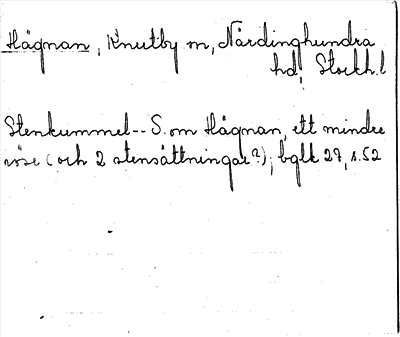 Hägnan, Knutby sn, Närdinghundra
hd, Stockh.l
Stenkummel-- S. om Hägnan, ett mindre
röse (och 2 stensättningar?); bglk 27, s. 52